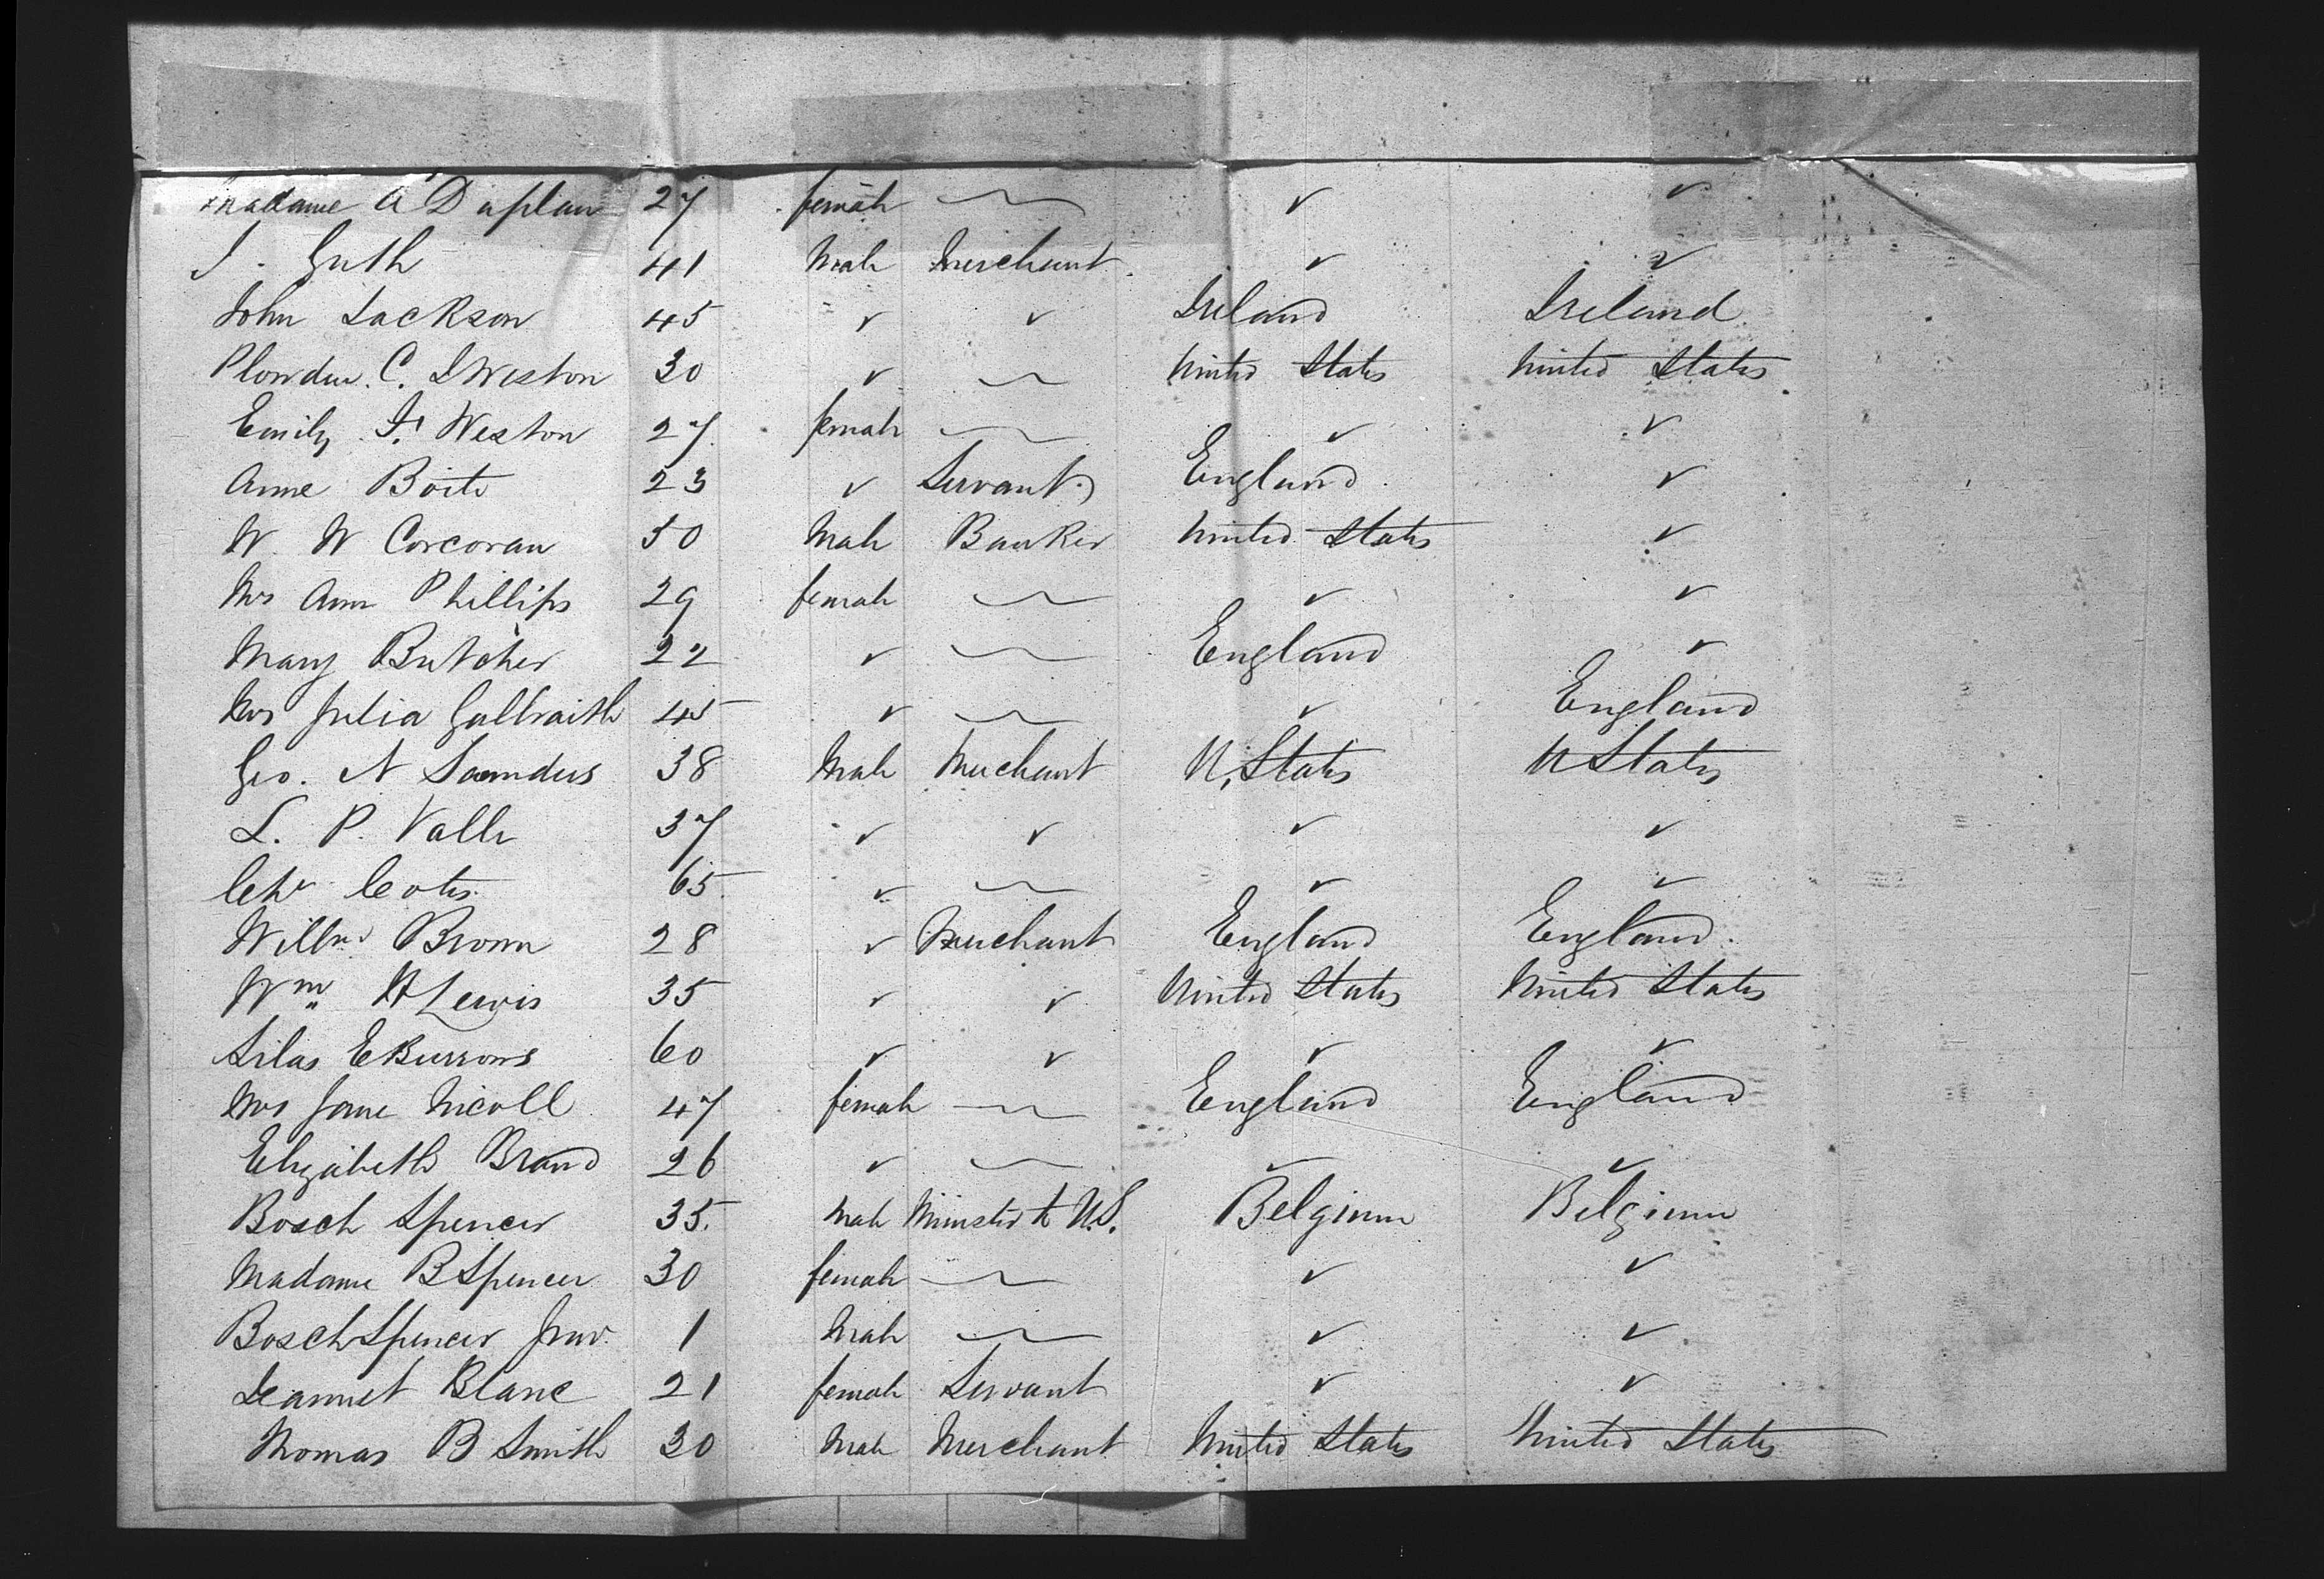 Madame A Duplan 27 female ~ ✓ ✓
J. Guth 41 Male Merchant ✓ ✓
John Jackson 45 ✓ ✓ Ireland Ireland
Plowden C. J Weston 30 ✓ ~ United States United States
Emily F. Weston 27 female ~ ✓ ✓
Anne 23 ✓ Servant England ✓
W. W Corcoran 50 Male Banker United States ✓
Mrs Ann Phillips 29 female ~ ✓ ✓
Mary Butcher 22 ✓ ~ England ✓
Mrs Julia Galbraith 45 ✓ ~ ✓ England
Geo. N Saunders 38 Male Merchant U. States U States
L. P. Valle 37 ✓ ✓ ✓ ✓
65 ✓ ~ ✓ ✓
Willm Brown 28 ✓ Merchant England England
Wm H Lewis 35 ✓ ✓ United States United States
Silas E Burrows 60 ✓ ✓ ✓ ✓
Mrs Jane Nicoll 47 female ~ England England
Elizabeth Brand 26 ✓ ~ ✓ ✓
Bosch Spencer 35. Male Minister to U.S. Belgium Belgium
Madame B Spencer 30 female ~ ✓ ✓
Bosch Spencer Junr. 1 Male ~ ✓ ✓
Jeannet Blanc 21 female Servant ✓ ✓
Thomas B Smith 30 Male Merchant United States United States